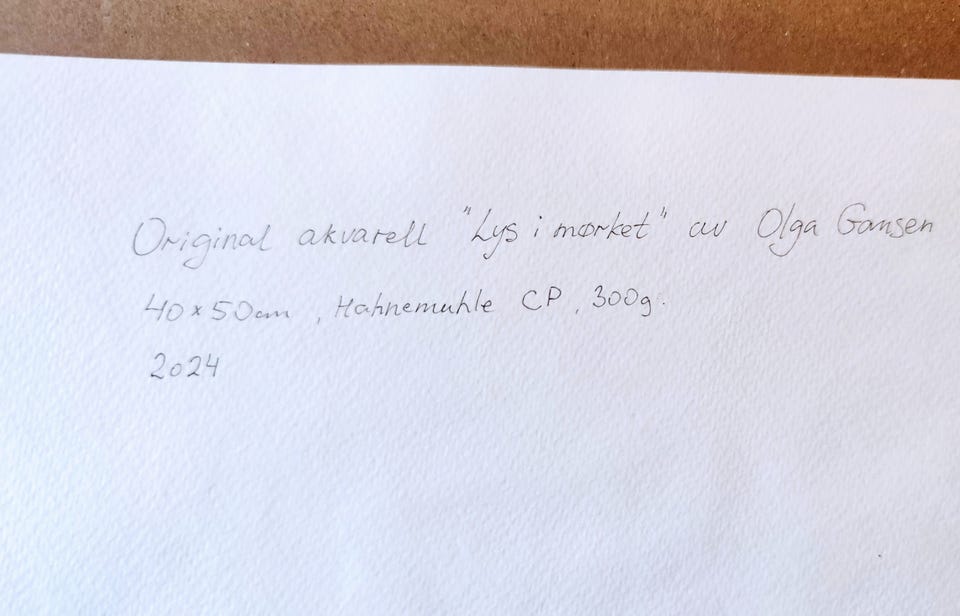 Original akvarell "Lys i mørket" av Olga Gansen
40×50cm, Hahnemuhle CP, 300g.
2024